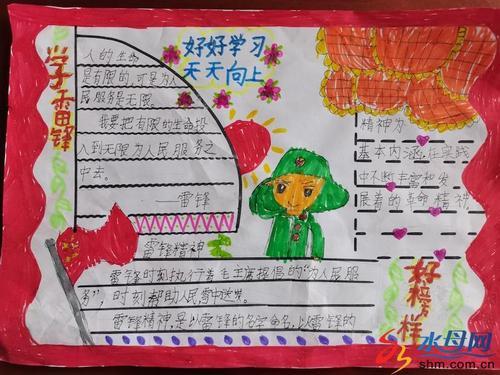 学雷锋
好好学习
天天向上
人的生命
是有限的,可是为人
民服务是无限,
我要把有限的生命投
入到无限为人民服务之
中去。
——雷锋
精神为
基本内涵,在实践
中不断丰富和发
展着的革命精神
雷锋精神
雷锋时刻执行着毛主席提倡的“为人民服
务”,时刻帮助人民
雷锋精神,是以雷锋的名字命名,以雷锋的
好榜样
水母网
shm.com.cn